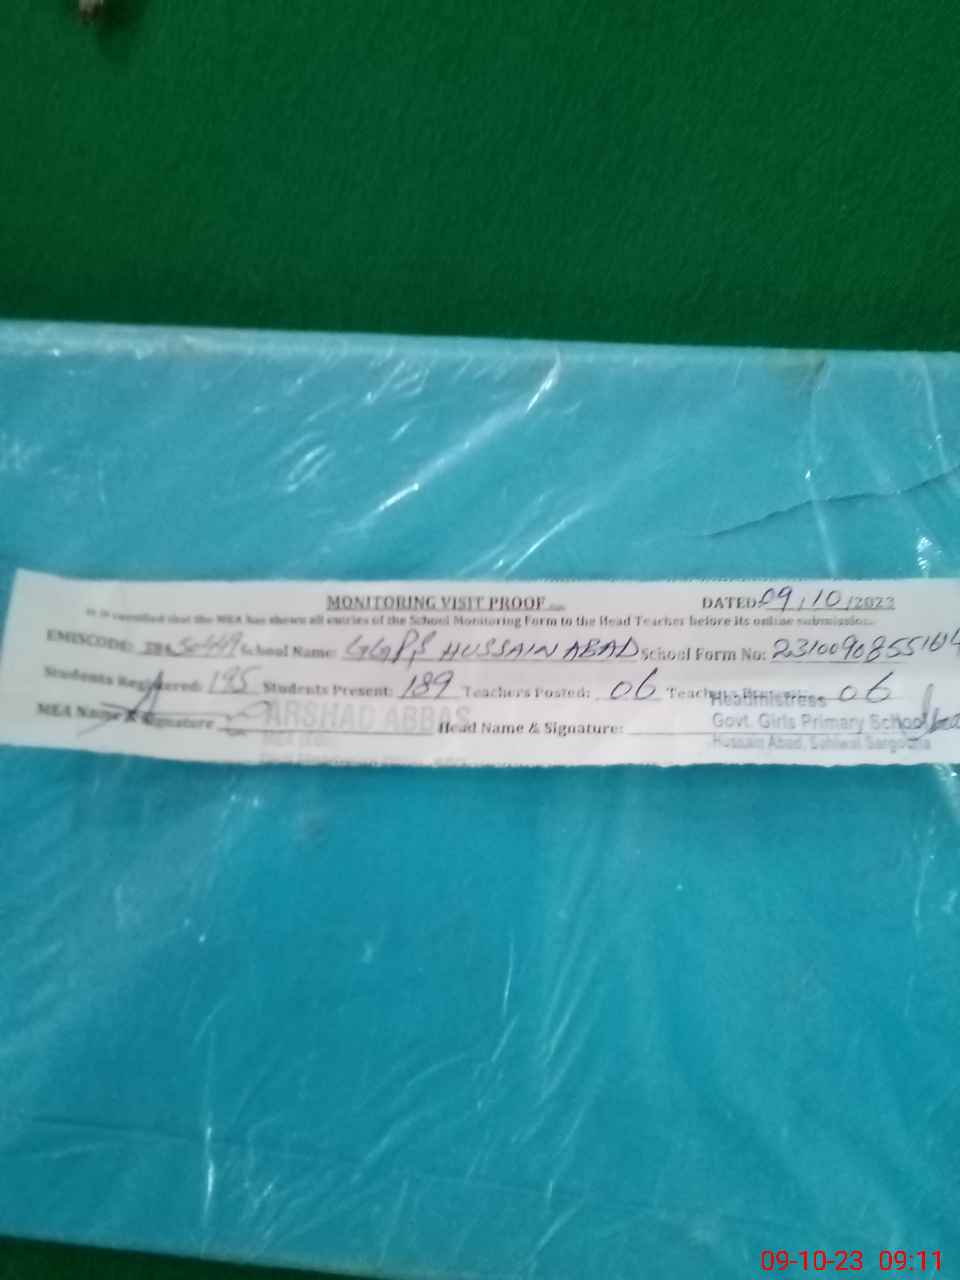 MONITORING VISIT PROOF
DATED 09/10/2023
It is certified that the MEA has shown all entries of the School Monitoring Form to the Head Teacher before its online submission.
EMISCODE: School Name: GGPS HUSSAIN ABAD School Form No:
Students Registered: 195 Students Present: 189 Teachers Posted: 06 06
MEA Name & Signature ARSHAD ABBAS Head Name & Signature:
Headmistress
Govt. Girls Primary School
Hussain Abad, Sahiwal Sargodha
09-10-23 09:11